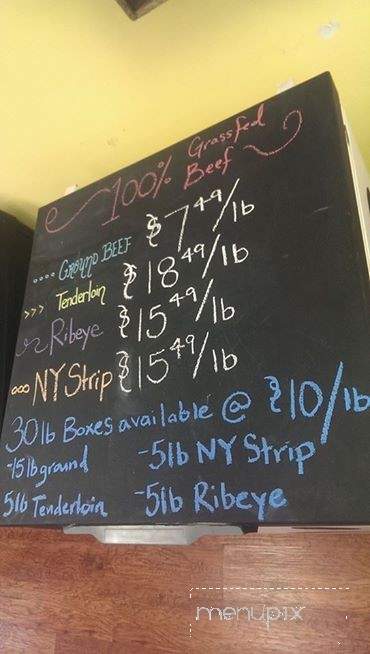 100% Grassfed Beef
GROUND BEEF $7.49/lb
>>> Tenderloin $18.49/lb
Ribeye $15.49/lb
NY Strip $15.49/lb
30lb Boxes available @ $10/lb
-15lb ground -5lb NY Strip
5lb Tenderloin -5lb Ribeye
menupix